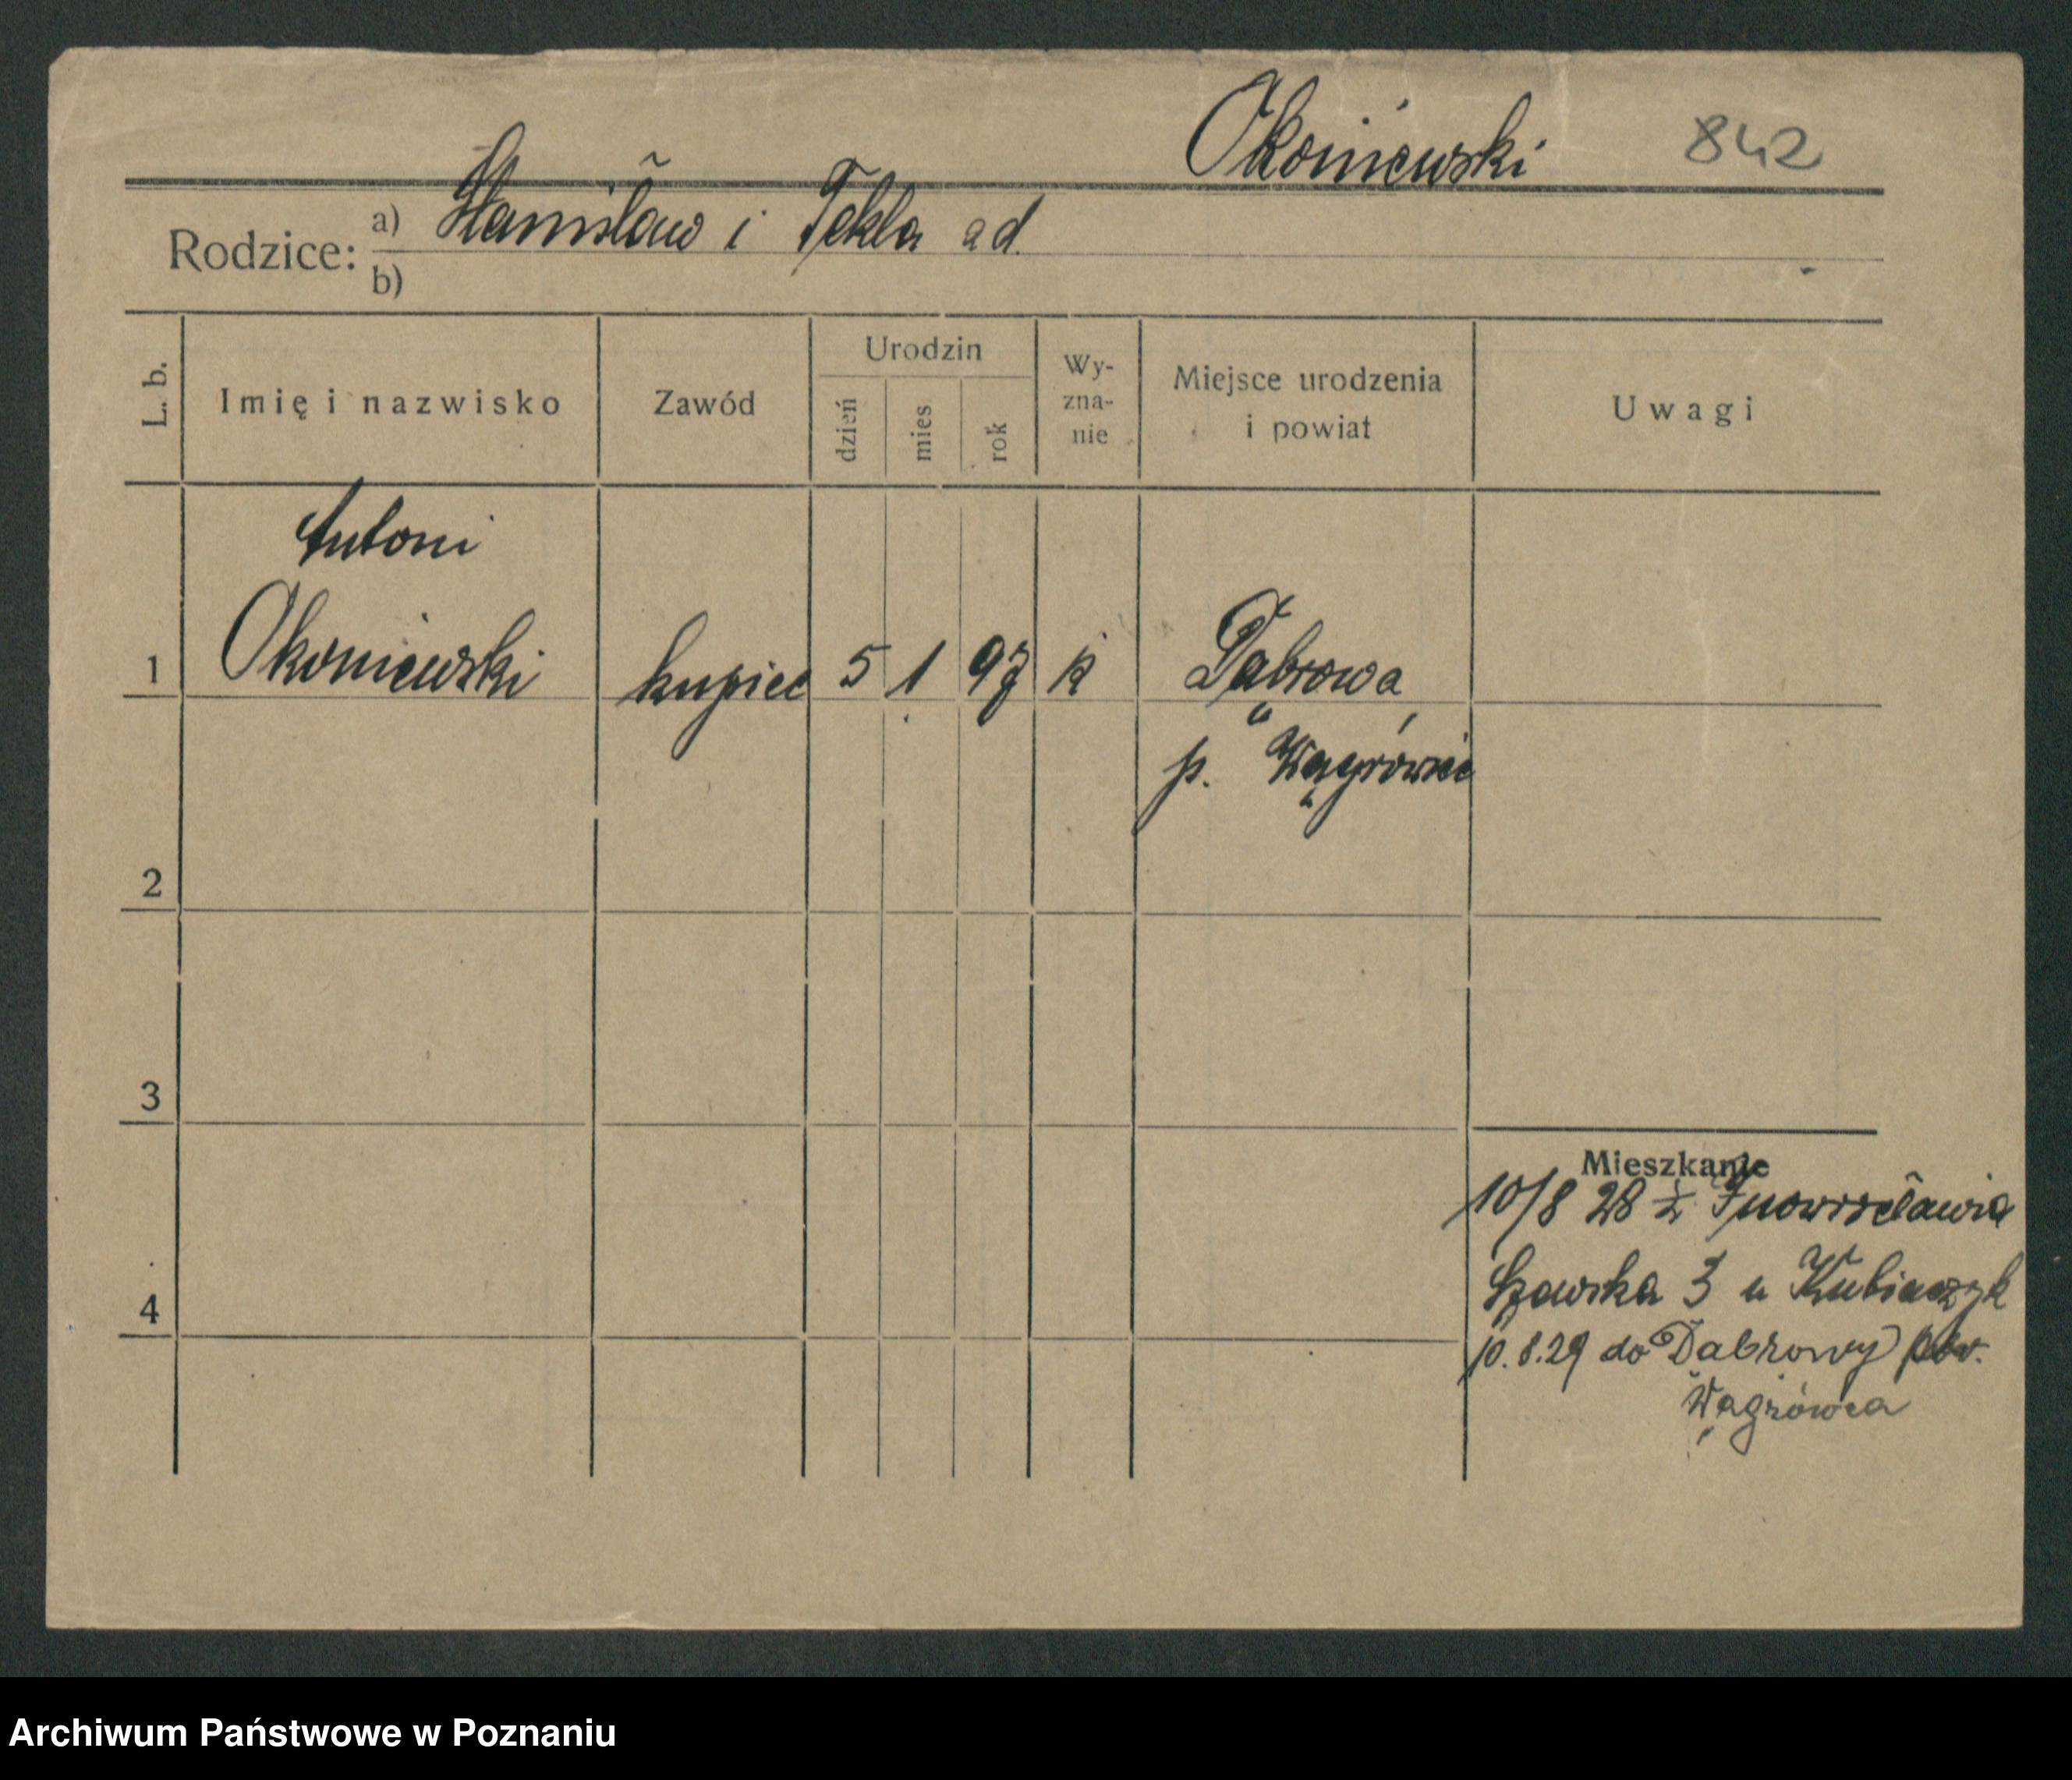 Okoniewski 842
Rodzice: a) Stanisław i Tekla ad.
b)
L. b. Imię i nazwisko Zawód Urodzin dzień mies rok Wy-zna-nie Miejsce urodzenia i powiat Uwagi
Antoni
1 Okoniewski kupiec 5 1 97 k Dąbrowa
p. Wągrówiec
2
3
Mieszkanie
10/8 28 z Inowrocławia
3 u Kubiaczyk
4
10.8.29 do Dąbrowy pow.
Wągrówca
Archiwum Państwowe w Poznaniu